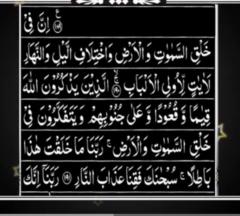 اِنَّ فِیْ
خَلْقِ السَّمٰوٰتِ وَالْاَرْضِ وَاخْتِلَافِ الَّیْلِ وَالنَّهَارِ
لَاٰیٰتٍ لِّاُولِی الْاَلْبَابِ ﴿۱۹۰﴾ الَّذِیْنَ یَذْكُرُوْنَ اللّٰهَ
قِیٰمًا وَّ قُعُوْدًا وَّ عَلٰی جُنُوْبِهِمْ وَ یَتَفَكَّرُوْنَ فِیْ
خَلْقِ السَّمٰوٰتِ وَالْاَرْضِ ۚ رَبَّنَا مَا خَلَقْتَ هٰذَا
بَاطِلًا ۚ سُبْحٰنَكَ فَقِنَا عَذَابَ النَّارِ ﴿۱۹۱﴾ رَبَّنَاۤ اِنَّكَ